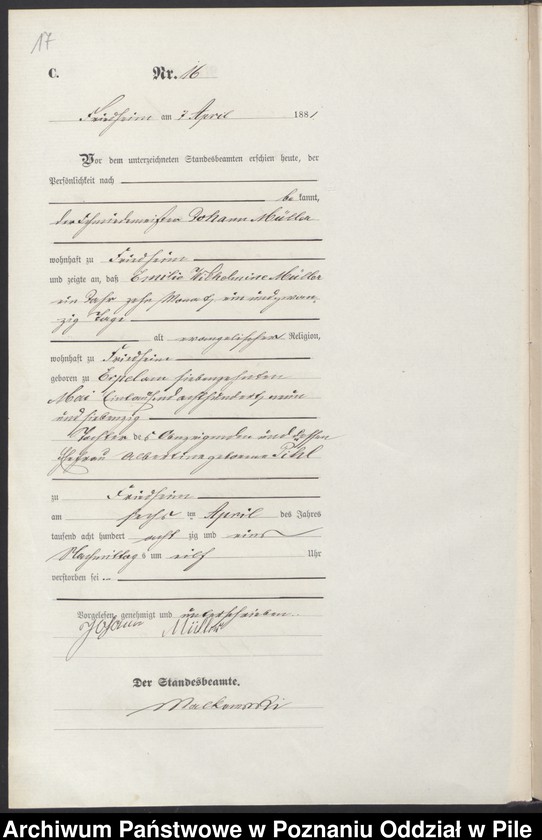 17
C. Nr. 16
Friedheim am 7 April 1881
Vor dem unterzeichneten Standesbeamten erschien heute, der
Persönlichkeit nach
be kannt,
der Schmiedemeister Johann Müller
wohnhaft zu Friedheim
und zeigte an, daß Emilie Wilhelmine Müller
ein Jahr zehn Monat, ein und zwan-
zig Tage
alt evangelischer Religion,
wohnhaft zu Friedheim
geboren zu am siebenzehnten
Mai Eintausend achthundert, neun
und siebenzig
Tochter des Anzeigenden und dessen
Ehefrau Albertine geborene
zu Friedheim
am sechs ten April des Jahres
tausend acht hundert acht zig und eins
Nachmittag s um eilf Uhr
verstorben sei
Vorgelesen, genehmigt und unterschrieben
Johann Müller
Der Standesbeamte.
Malkowski
Archiwum Państwowe w Poznaniu Oddział w Pile